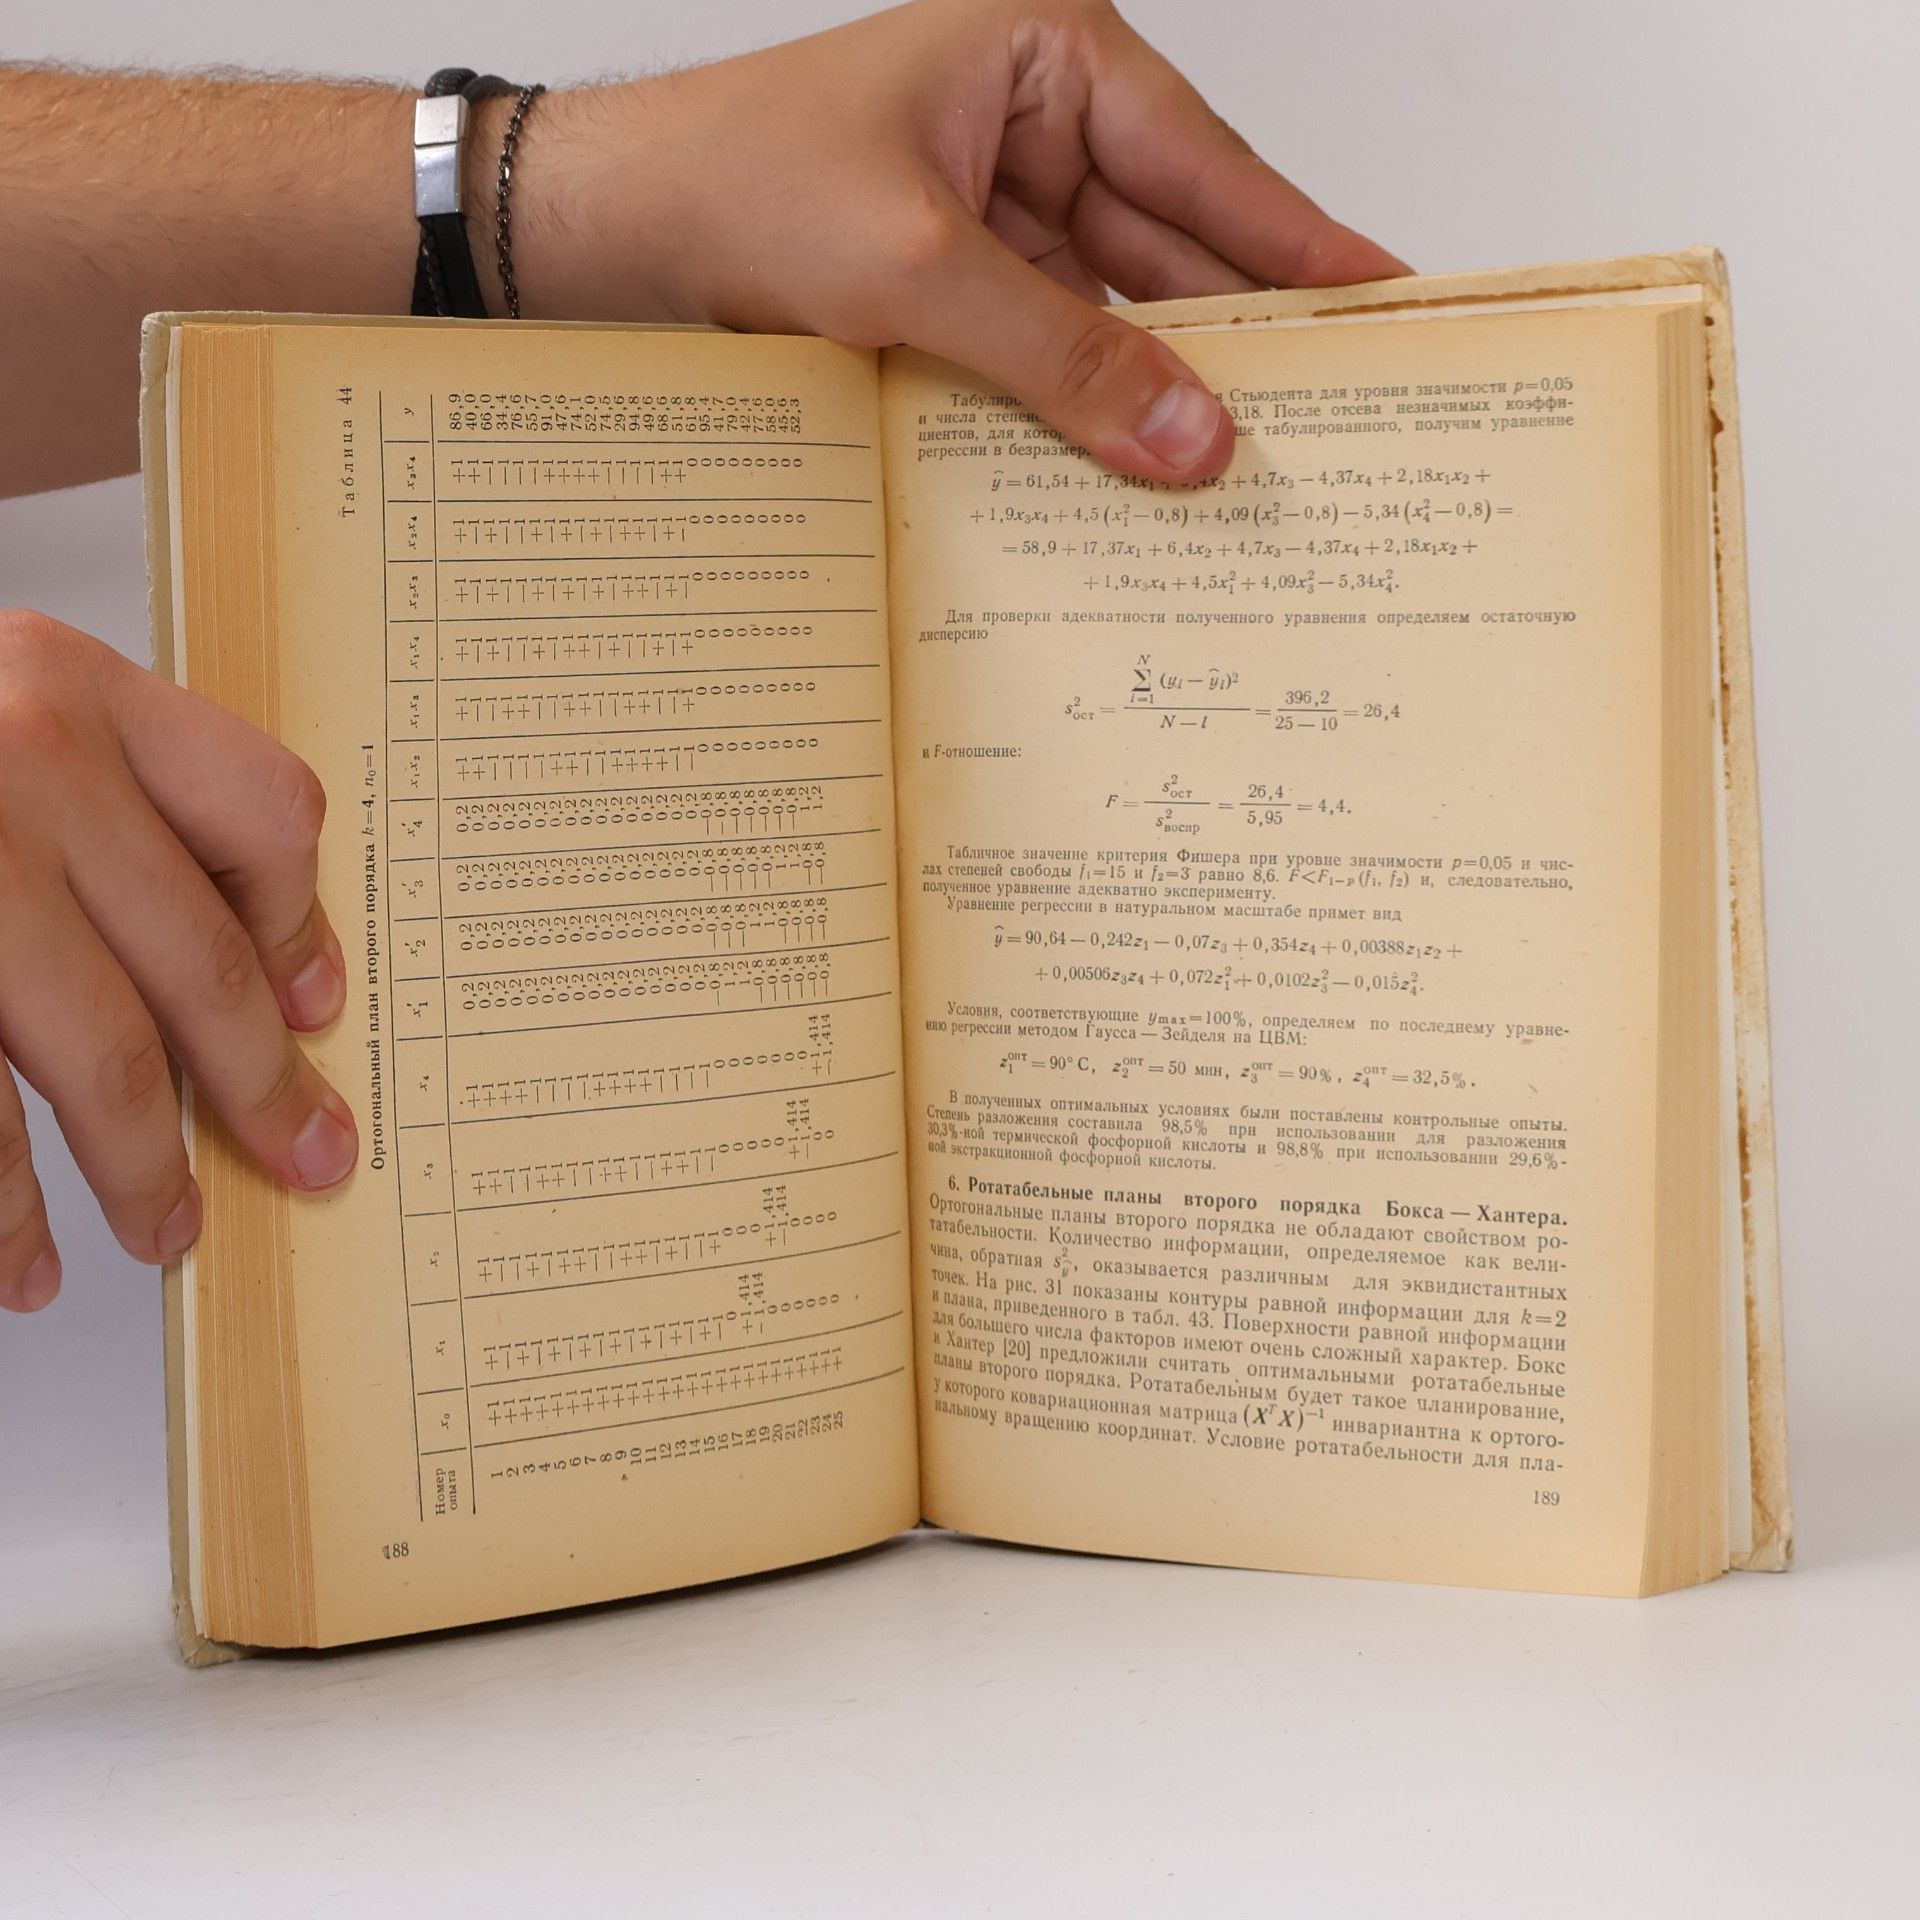 Таблица 44
Ортогональный план второго порядка k=4, n₀=1
Номер опыта x₀ x₁ x₂ x₃ x₄ x′₁ x′₂ x′₃ x′₄ x₁x₂ x₁x₃ x₁x₄ x₂x₃ x₂x₄ x₃x₄ y
1 +1 +1 +1 +1 +1 0,2 0,2 0,2 0,2 +1 +1 +1 +1 +1 +1 86,9
2 +1 0,2 0,2 0,2 0,2 40,0
3 +1 0,2 0,2 0,2 0,2 66,0
4 +1 0,2 0,2 0,2 0,2 34,4
5 +1 0,2 0,2 0,2 0,2 76,6
6 +1 0,2 0,2 0,2 0,2 55,7
7 +1 0,2 0,2 0,2 0,2 91,0
8 +1 0,2 0,2 0,2 0,2 47,6
9 +1 0,2 0,2 0,2 0,2 74,1
10 +1 0,2 0,2 0,2 0,2 52,0
11 +1 0,2 0,2 0,2 0,2 74,5
12 +1 0,2 0,2 0,2 0,2 29,6
13 +1 0,2 0,2 0,2 0,2 94,8
14 +1 0,2 0,2 0,2 0,2 49,6
15 +1 0,2 0,2 0,2 0,2 68,6
16 +1 0,2 0,2 0,2 0,2 51,8
17 +1 0 0 0 0 —0,8 —0,8 —0,8 —0,8 0 0 0 0 0 0 61,8
18 +1 +1,414 0 0 0 1,2 —0,8 —0,8 —0,8 0 0 0 0 0 0 95,4
19 +1 —1,414 0 0 0 1,2 —0,8 —0,8 —0,8 0 0 0 0 0 0 41,7
20 +1 0 +1,414 0 0 —0,8 1,2 —0,8 —0,8 0 0 0 0 0 0 79,0
21 +1 0 —1,414 0 0 —0,8 1,2 —0,8 —0,8 0 0 0 0 0 0 42,4
22 +1 0 0 +1,414 0 —0,8 —0,8 1,2 —0,8 0 0 0 0 0 0 77,6
23 +1 0 0 —1,414 0 —0,8 —0,8 1,2 —0,8 0 0 0 0 0 0 58,0
24 +1 0 0 0 +1,414 —0,8 —0,8 —0,8 1,2 0 0 0 0 0 0 45,6
25 +1 0 0 0 —1,414 —0,8 —0,8 —0,8 1,2 0 0 0 0 0 0 52,3
188
Стьюдента для уровня значимости p=0,05
и числа 3,18. После отсева незначимых коэффи-
циентов, для табулированного, получим уравнение
регрессии в
ŷ = 61,54 + 17,34x₁ x₂ + 4,7x₃ — 4,37x₄ + 2,18x₁x₂ +
+ 1,9x₃x₄ + 4,5 (x₁² — 0,8) + 4,09 (x₃² — 0,8) — 5,34 (x₄² — 0,8) =
= 58,9 + 17,37x₁ + 6,4x₂ + 4,7x₃ — 4,37x₄ + 2,18x₁x₂ +
+ 1,9x₃x₄ + 4,5x₁² + 4,09x₃² — 5,34x₄².
Для проверки адекватности полученного уравнения определяем остаточную
дисперсию
s²ост = ∑ᵢ₌₁ᴺ (yᵢ — ŷᵢ)² / (N — l) = 396,2 / (25 — 10) = 26,4
и F-отношение:
F = s²ост / s²воспр = 26,4 / 5,95 = 4,4.
Табличное значение критерия Фишера при уровне значимости p=0,05 и чис-
лах степеней свободы f₁=15 и f₂=3 равно 8,6. F<F₁₋ₚ(f₁, f₂) и, следовательно,
полученное уравнение адекватно эксперименту.
Уравнение регрессии в натуральном масштабе примет вид
ŷ = 90,64 — 0,242z₁ — 0,07z₃ + 0,354z₄ + 0,00388z₁z₂ +
+ 0,00506z₃z₄ + 0,072z₁² + 0,0102z₃² — 0,015z₄².
Условия, соответствующие yₘₐₓ=100%, определяем по последнему уравне-
нию регрессии методом Гаусса — Зейделя на ЦВМ:
z₁ᵒᵖᵗ = 90° C, z₂ᵒᵖᵗ = 50 мин, z₃ᵒᵖᵗ = 90%, z₄ᵒᵖᵗ = 32,5%.
В полученных оптимальных условиях были поставлены контрольные опыты.
Степень разложения составила 98,5% при использовании для разложения
30,3%-ной термической фосфорной кислоты и 98,8% при использовании 29,6%-
ной экстракционной фосфорной кислоты.
6. Ротатабельные планы второго порядка Бокса — Хантера.
Ортогональные планы второго порядка не обладают свойством ро-
татабельности. Количество информации, определяемое как вели-
чина, обратная s²ŷ, оказывается различным для эквидистантных
точек. На рис. 31 показаны контуры равной информации для k=2
и плана, приведенного в табл. 43. Поверхности равной информации
для большего числа факторов имеют очень сложный характер. Бокс
и Хантер [20] предложили считать оптимальными ротатабельные
планы второго порядка. Ротатабельным будет такое планирование,
у которого ковариационная матрица (XᵀX)⁻¹ инвариантна к ортого-
нальному вращению координат. Условие ротатабельности для пла-
189